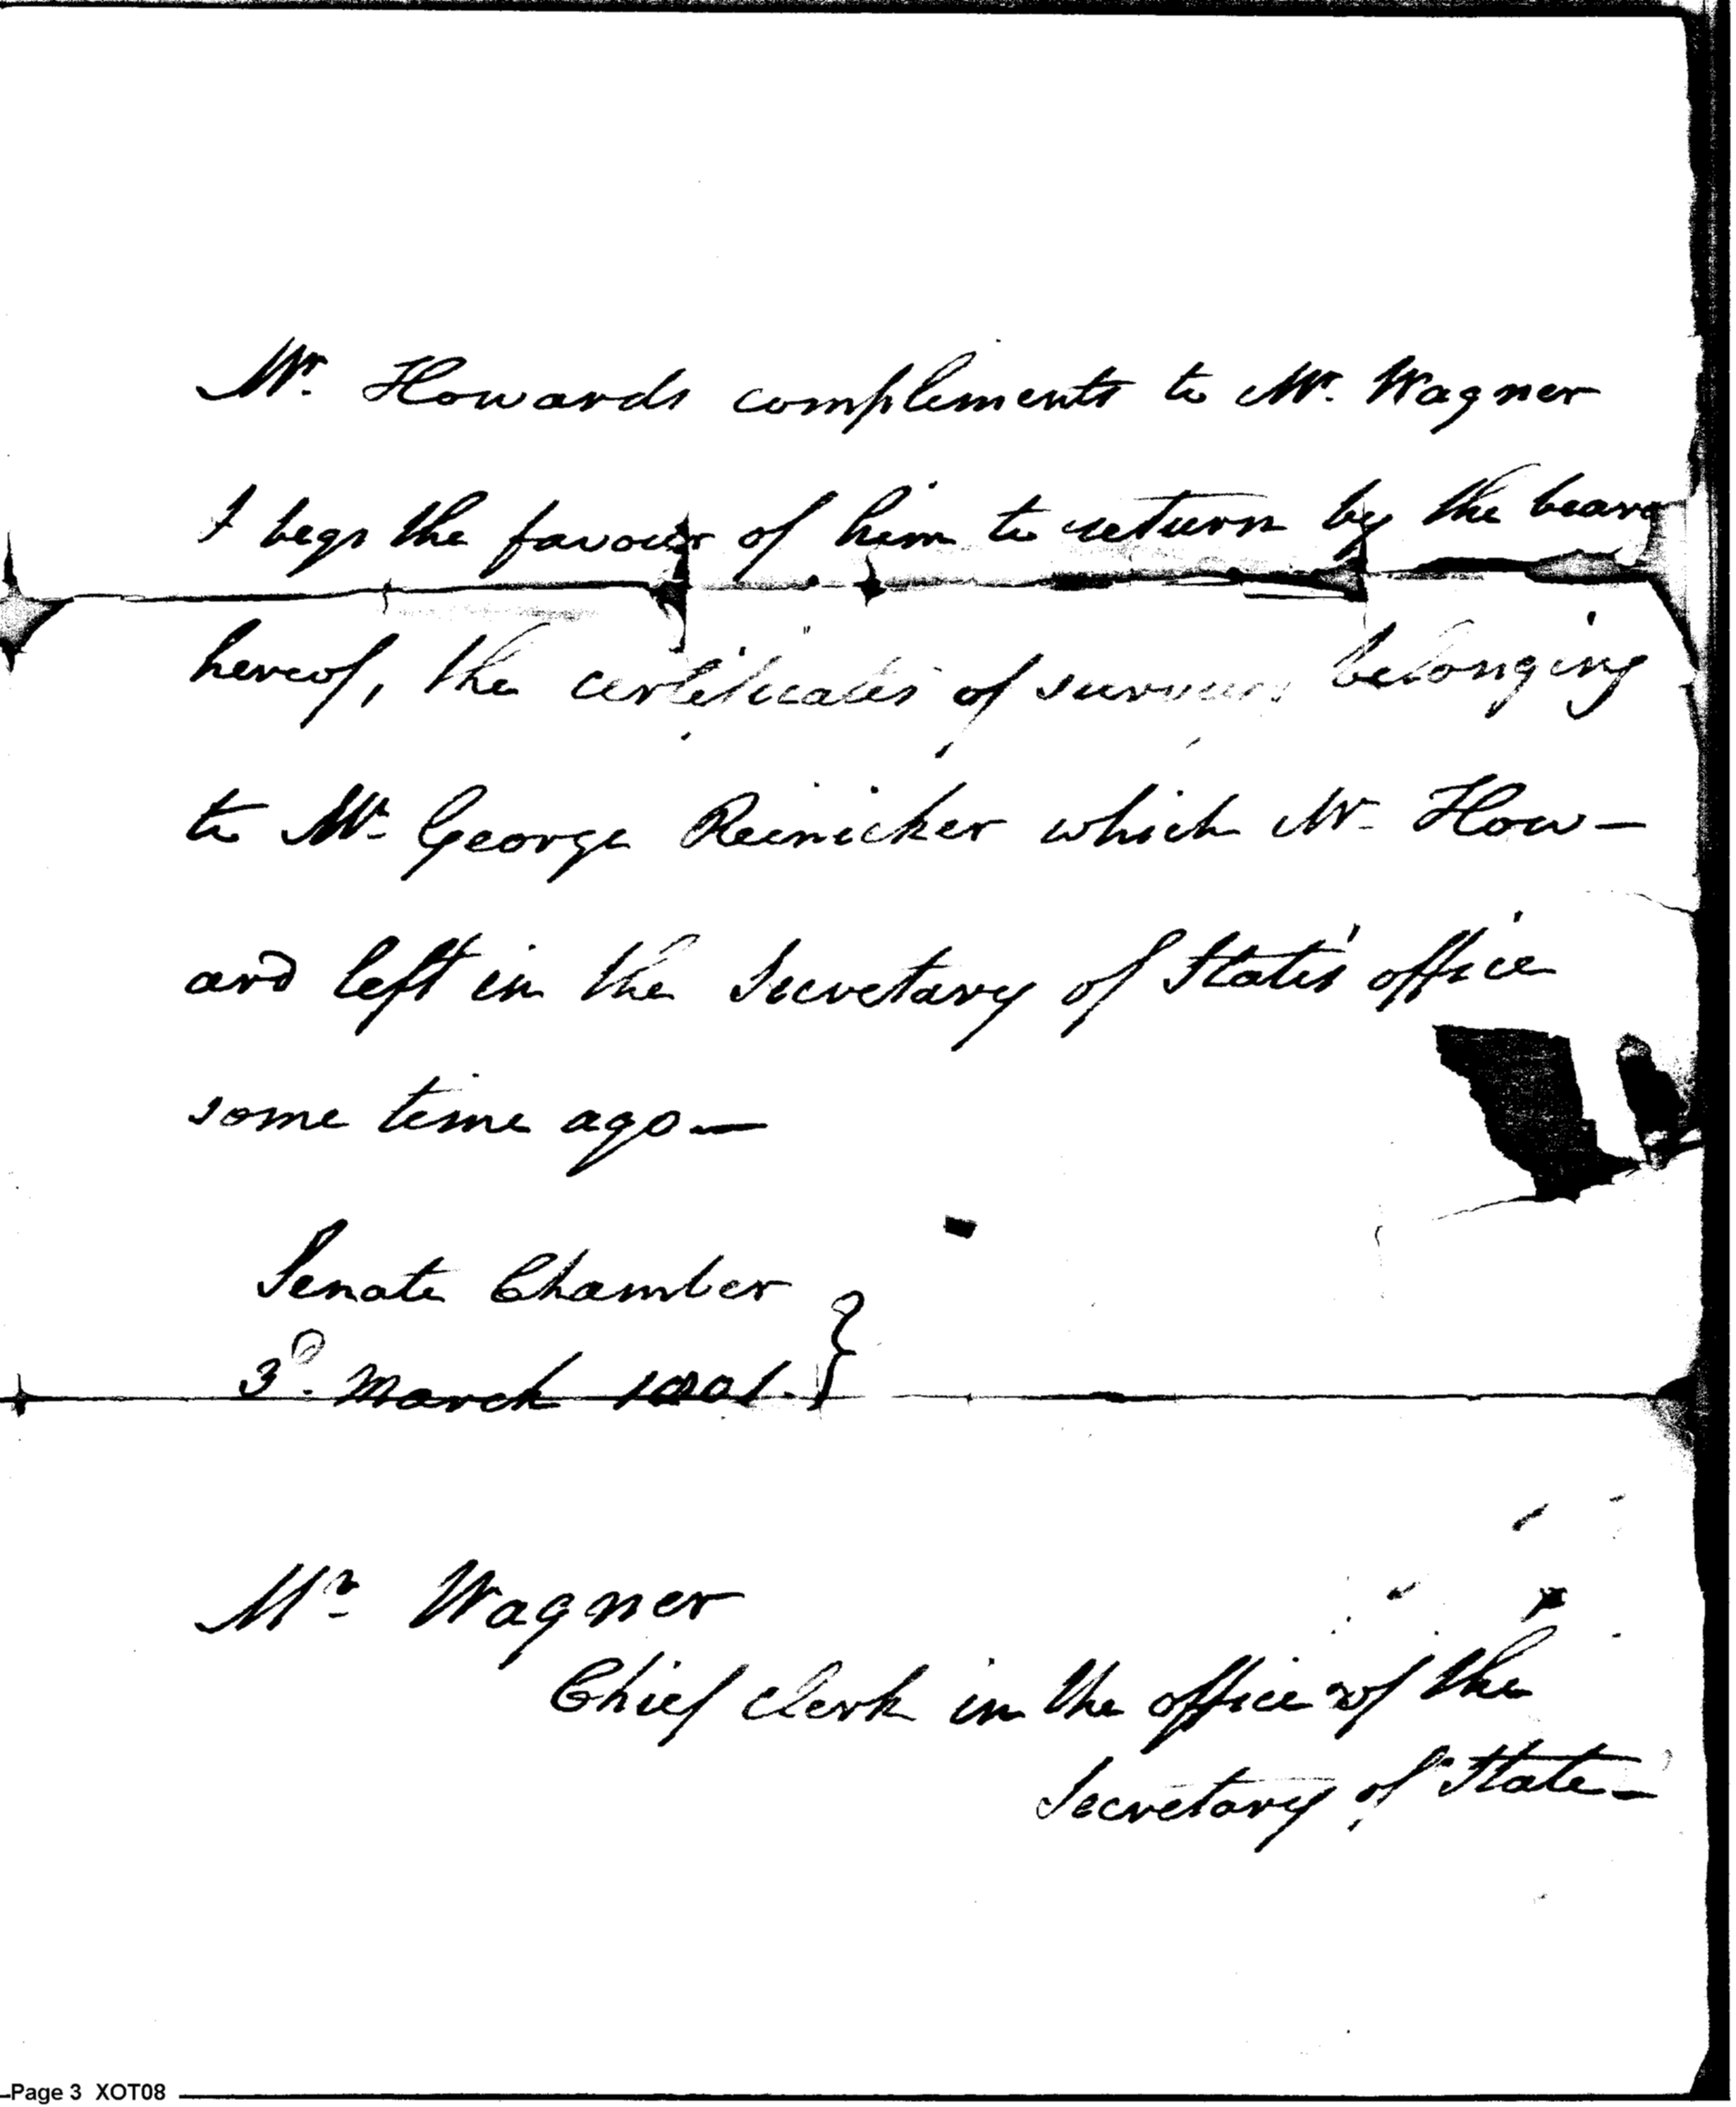 Mr. Howards complements to Mr. Wagner
& begs the favour of him to return by the bearer
hereof, the certificates of surveys belonging
to Mr. George Reinicker which Mr. How-
ard left in the Secretary of State's office
some time ago—
Senate Chamber
3d. March 1801. }
Mr. Wagner
Chief Clerk in the office of the
Secretary of State—
Page 3 XOT08